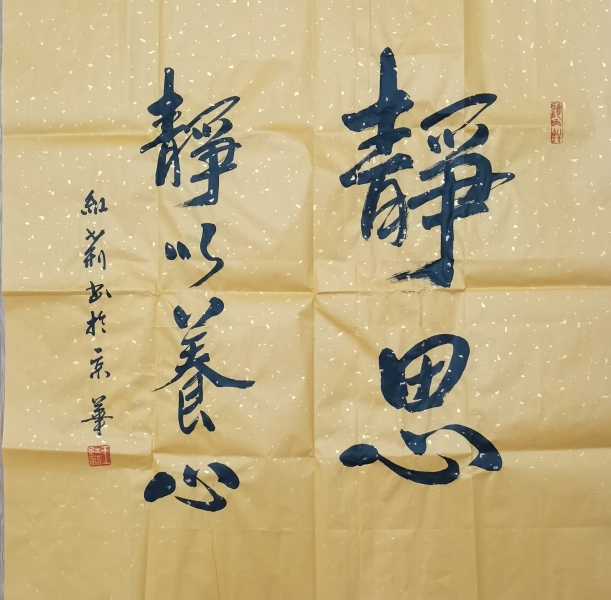 靜思
靜以養心
紅莉书於京華